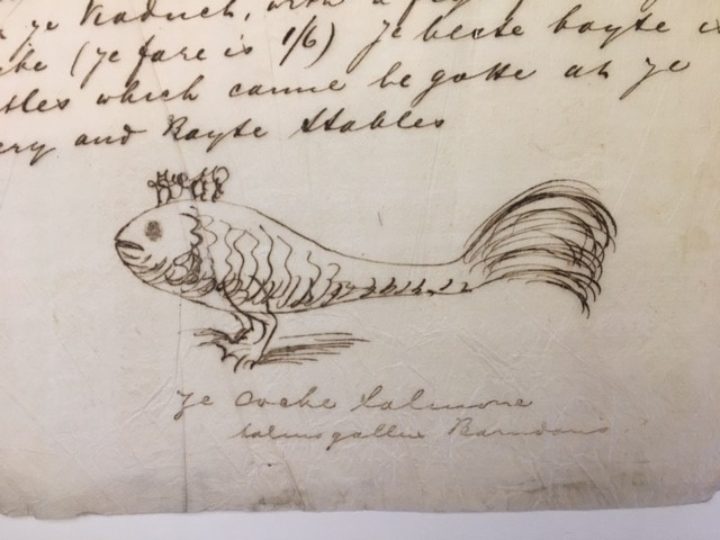 ye Viaduct, with a
(ye fare is 1/6) ye beste bayte is
which canne be gotte at ye
and Bayte Stables
ye Cocke Salmone
salmo gallus